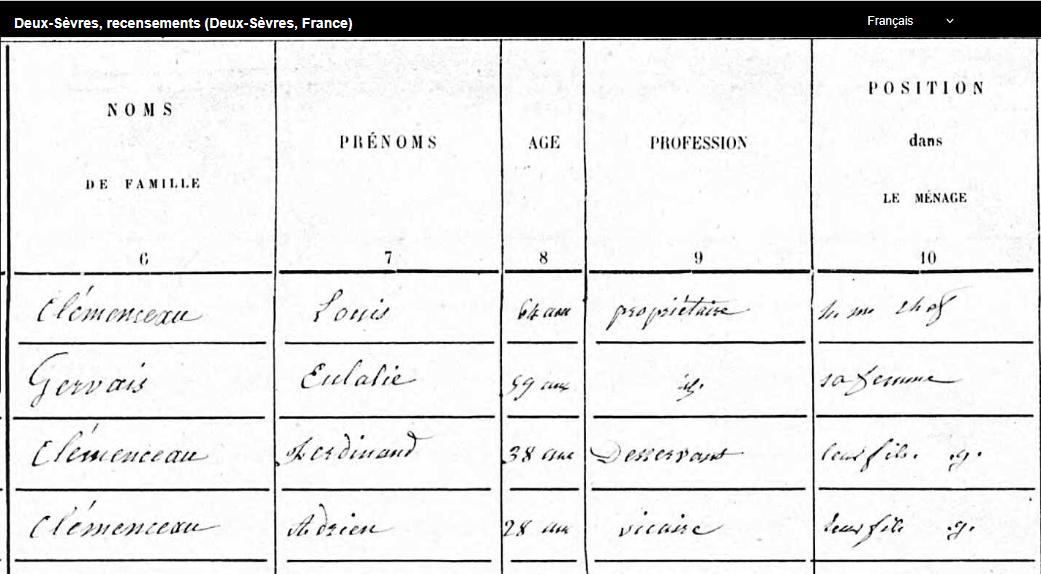 Deux-Sèvres, recensements (Deux-Sèvres, France) Français
NOMS DE FAMILLE PRÉNOMS AGE PROFESSION POSITION dans LE MÉNAGE
6 7 8 9 10
Clémenceau Louis 64 ans propriétaire chef
Gervais Eulalie 59 ans id. sa femme
Clémenceau Ferdinand 38 ans Desservant leur fils. g.
Clémenceau Adrien 28 ans vicaire leur fils g.